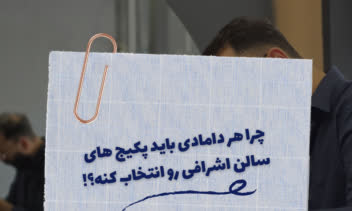 چرا هر دامادی باید پکیج های
سالن اشرافی رو انتخاب کنه؟!